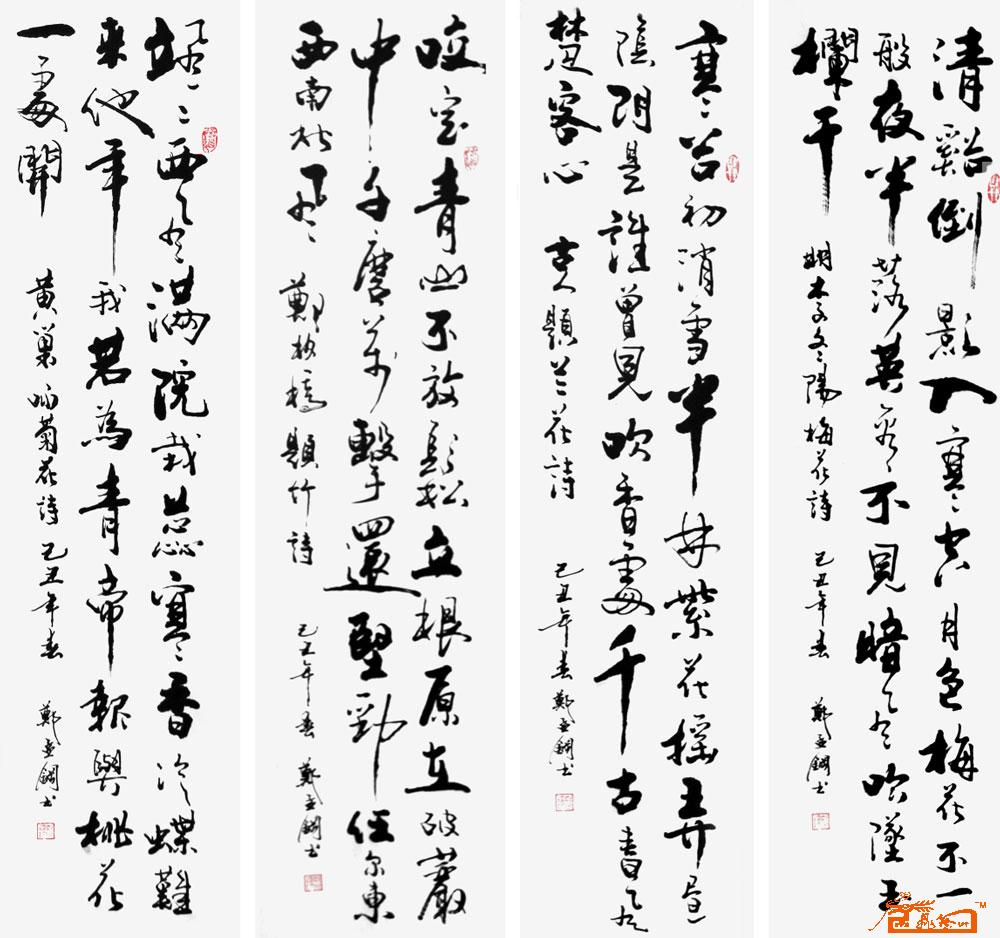 清谿倒影入寒空月色梅花不一
般夜半落英看不見暗風吹墜玉
欄干 明李东陽梅花詩 己丑年春 鄭鋼书
寒谷初消雪半林紫花摇弄昼
陰阴是誰曾見吹香處千古春風
楚客心 古人題兰花詩 己丑年春 鄭鋼书
咬定青山不放鬆立根原在破巖
中千磨萬擊還堅勁任尔東
西南北風 鄭板橋題竹詩 己丑年春 鄭鋼书
颯颯西風满院栽蕊寒香冷蝶難
来他年我若為青帝報與桃花
一處開 黃巢咏菊花詩 己丑年春 鄭鋼书